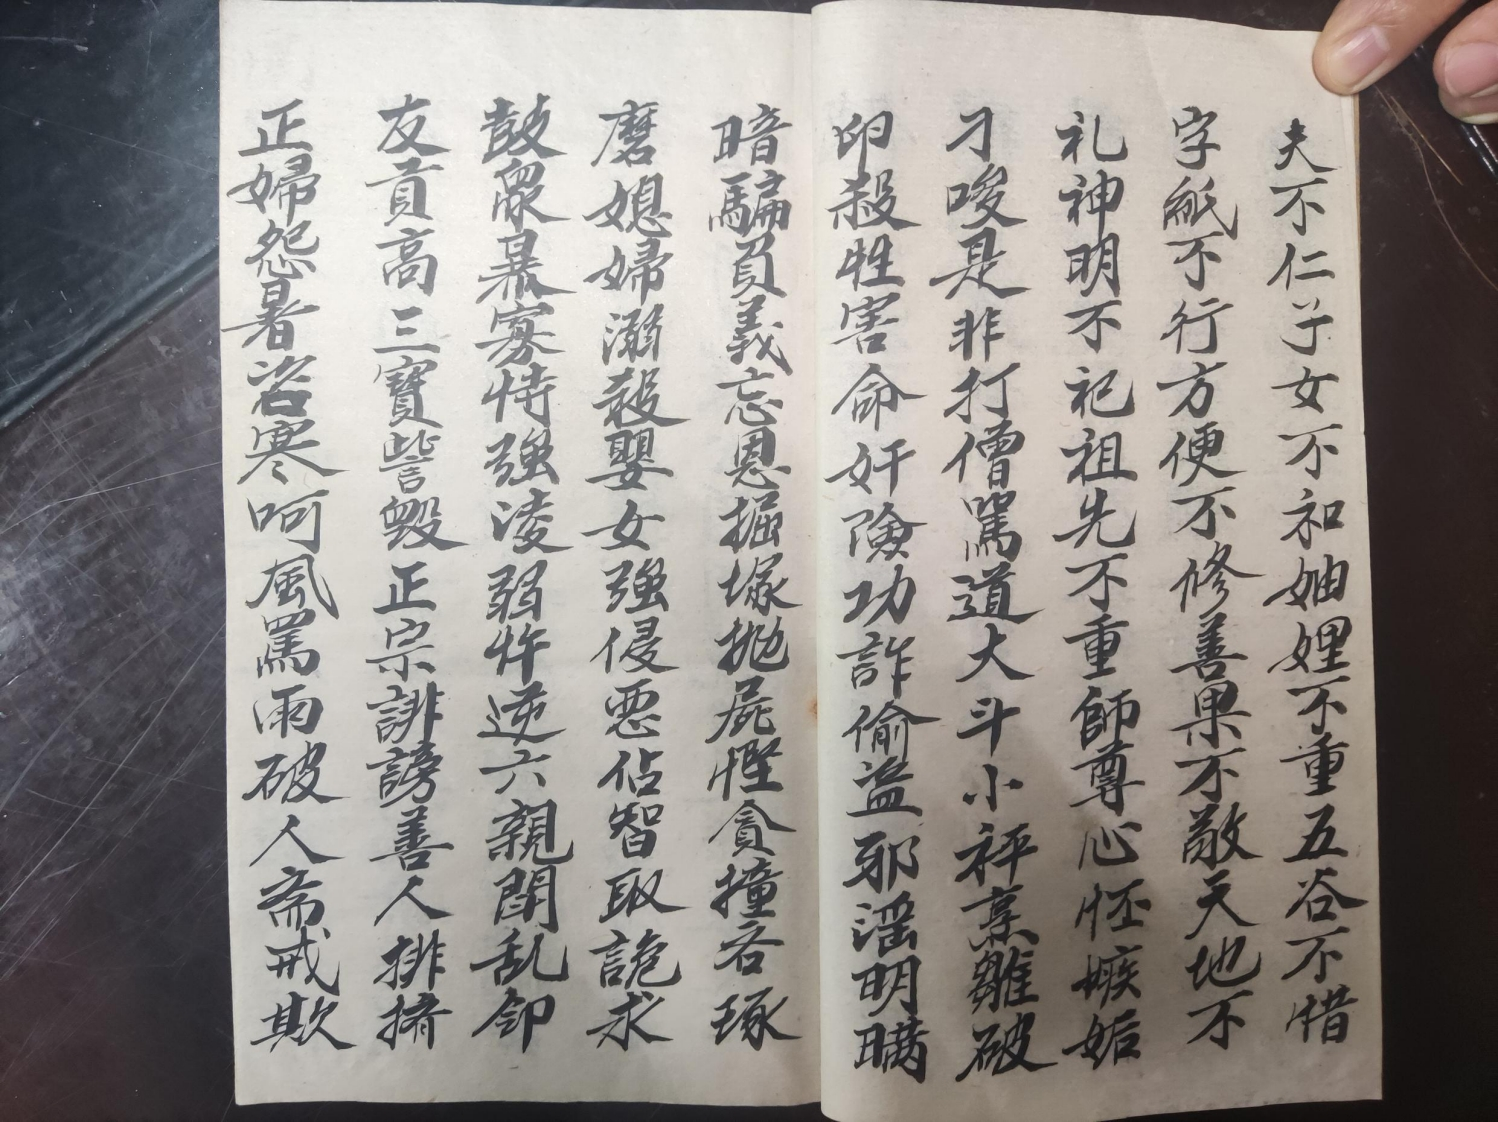 夫不仁子女不和妯娌不重五谷不惜
字紙不行方便不修善果不敬天地不
礼神明不祀祖先不重師尊心怪嫉妬
刁唆是非打僧罵道大斗小秤烹雛破
卵殺牲害命奸險功詐偷盜邪淫明瞞
暗騙負義忘恩掘塚拋屍慳貪撞吝琢
磨媳婦溺殺嬰女強侵悪佔智取詭求
鼓眾暴寡恃強凌弱忤逆六親閗乱鄉
友貢高三寶訾毀正宗誹謗善人排擠
正婦怨暑咨寒呵風罵雨破人斋戒欺